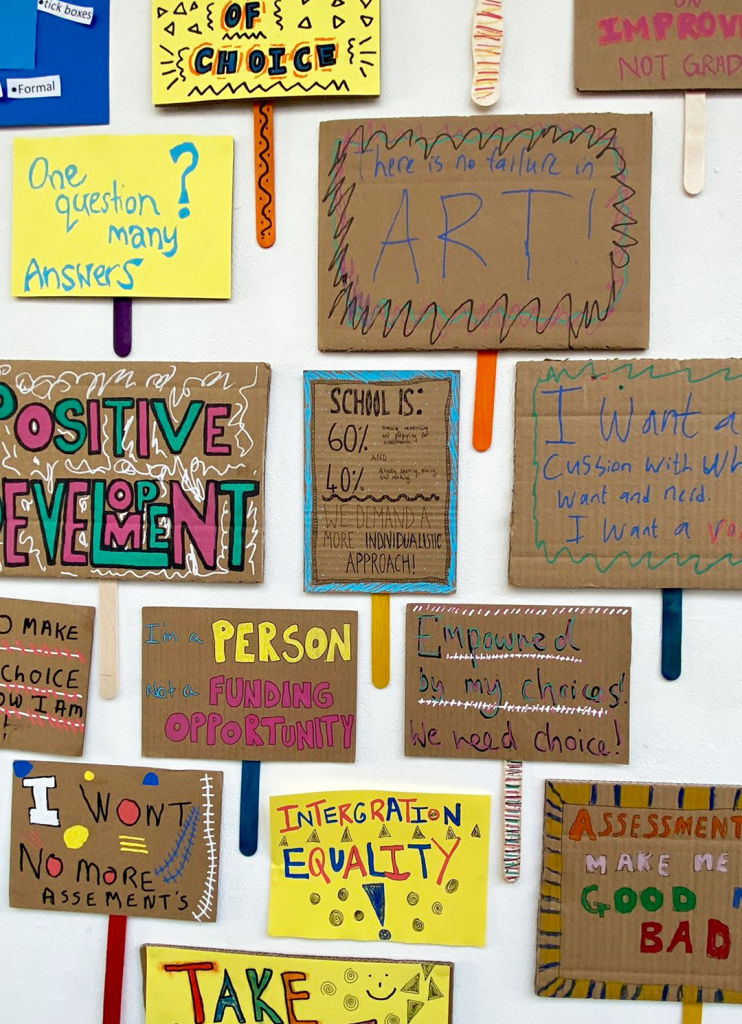 •tick boxes
•Formal
OF
CHOICE
IMPROV
NOT GRAD
One
question ?
many
Answers
There is no failure in
ART!
POSITIVE
DEVELOPEMENT
SCHOOL IS:
60%
AND
40%
WE DEMAND A
MORE INDIVIDUALISTIC
APPROACH!
I Want a
Cussion with Wh
want and nerd.
I want a vo
O MAKE
CHOICE
OW I AM
I'm a PERSON
Not a FUNDING
OPPORTUNITY
Empowred
by my choices!
We need choice!
I WONT
NO MORE
ASSEMENT'S
INTERGRATION
EQUALITY
!
ASSESSMENT
MAKE ME
GOOD
BAD
TAKE